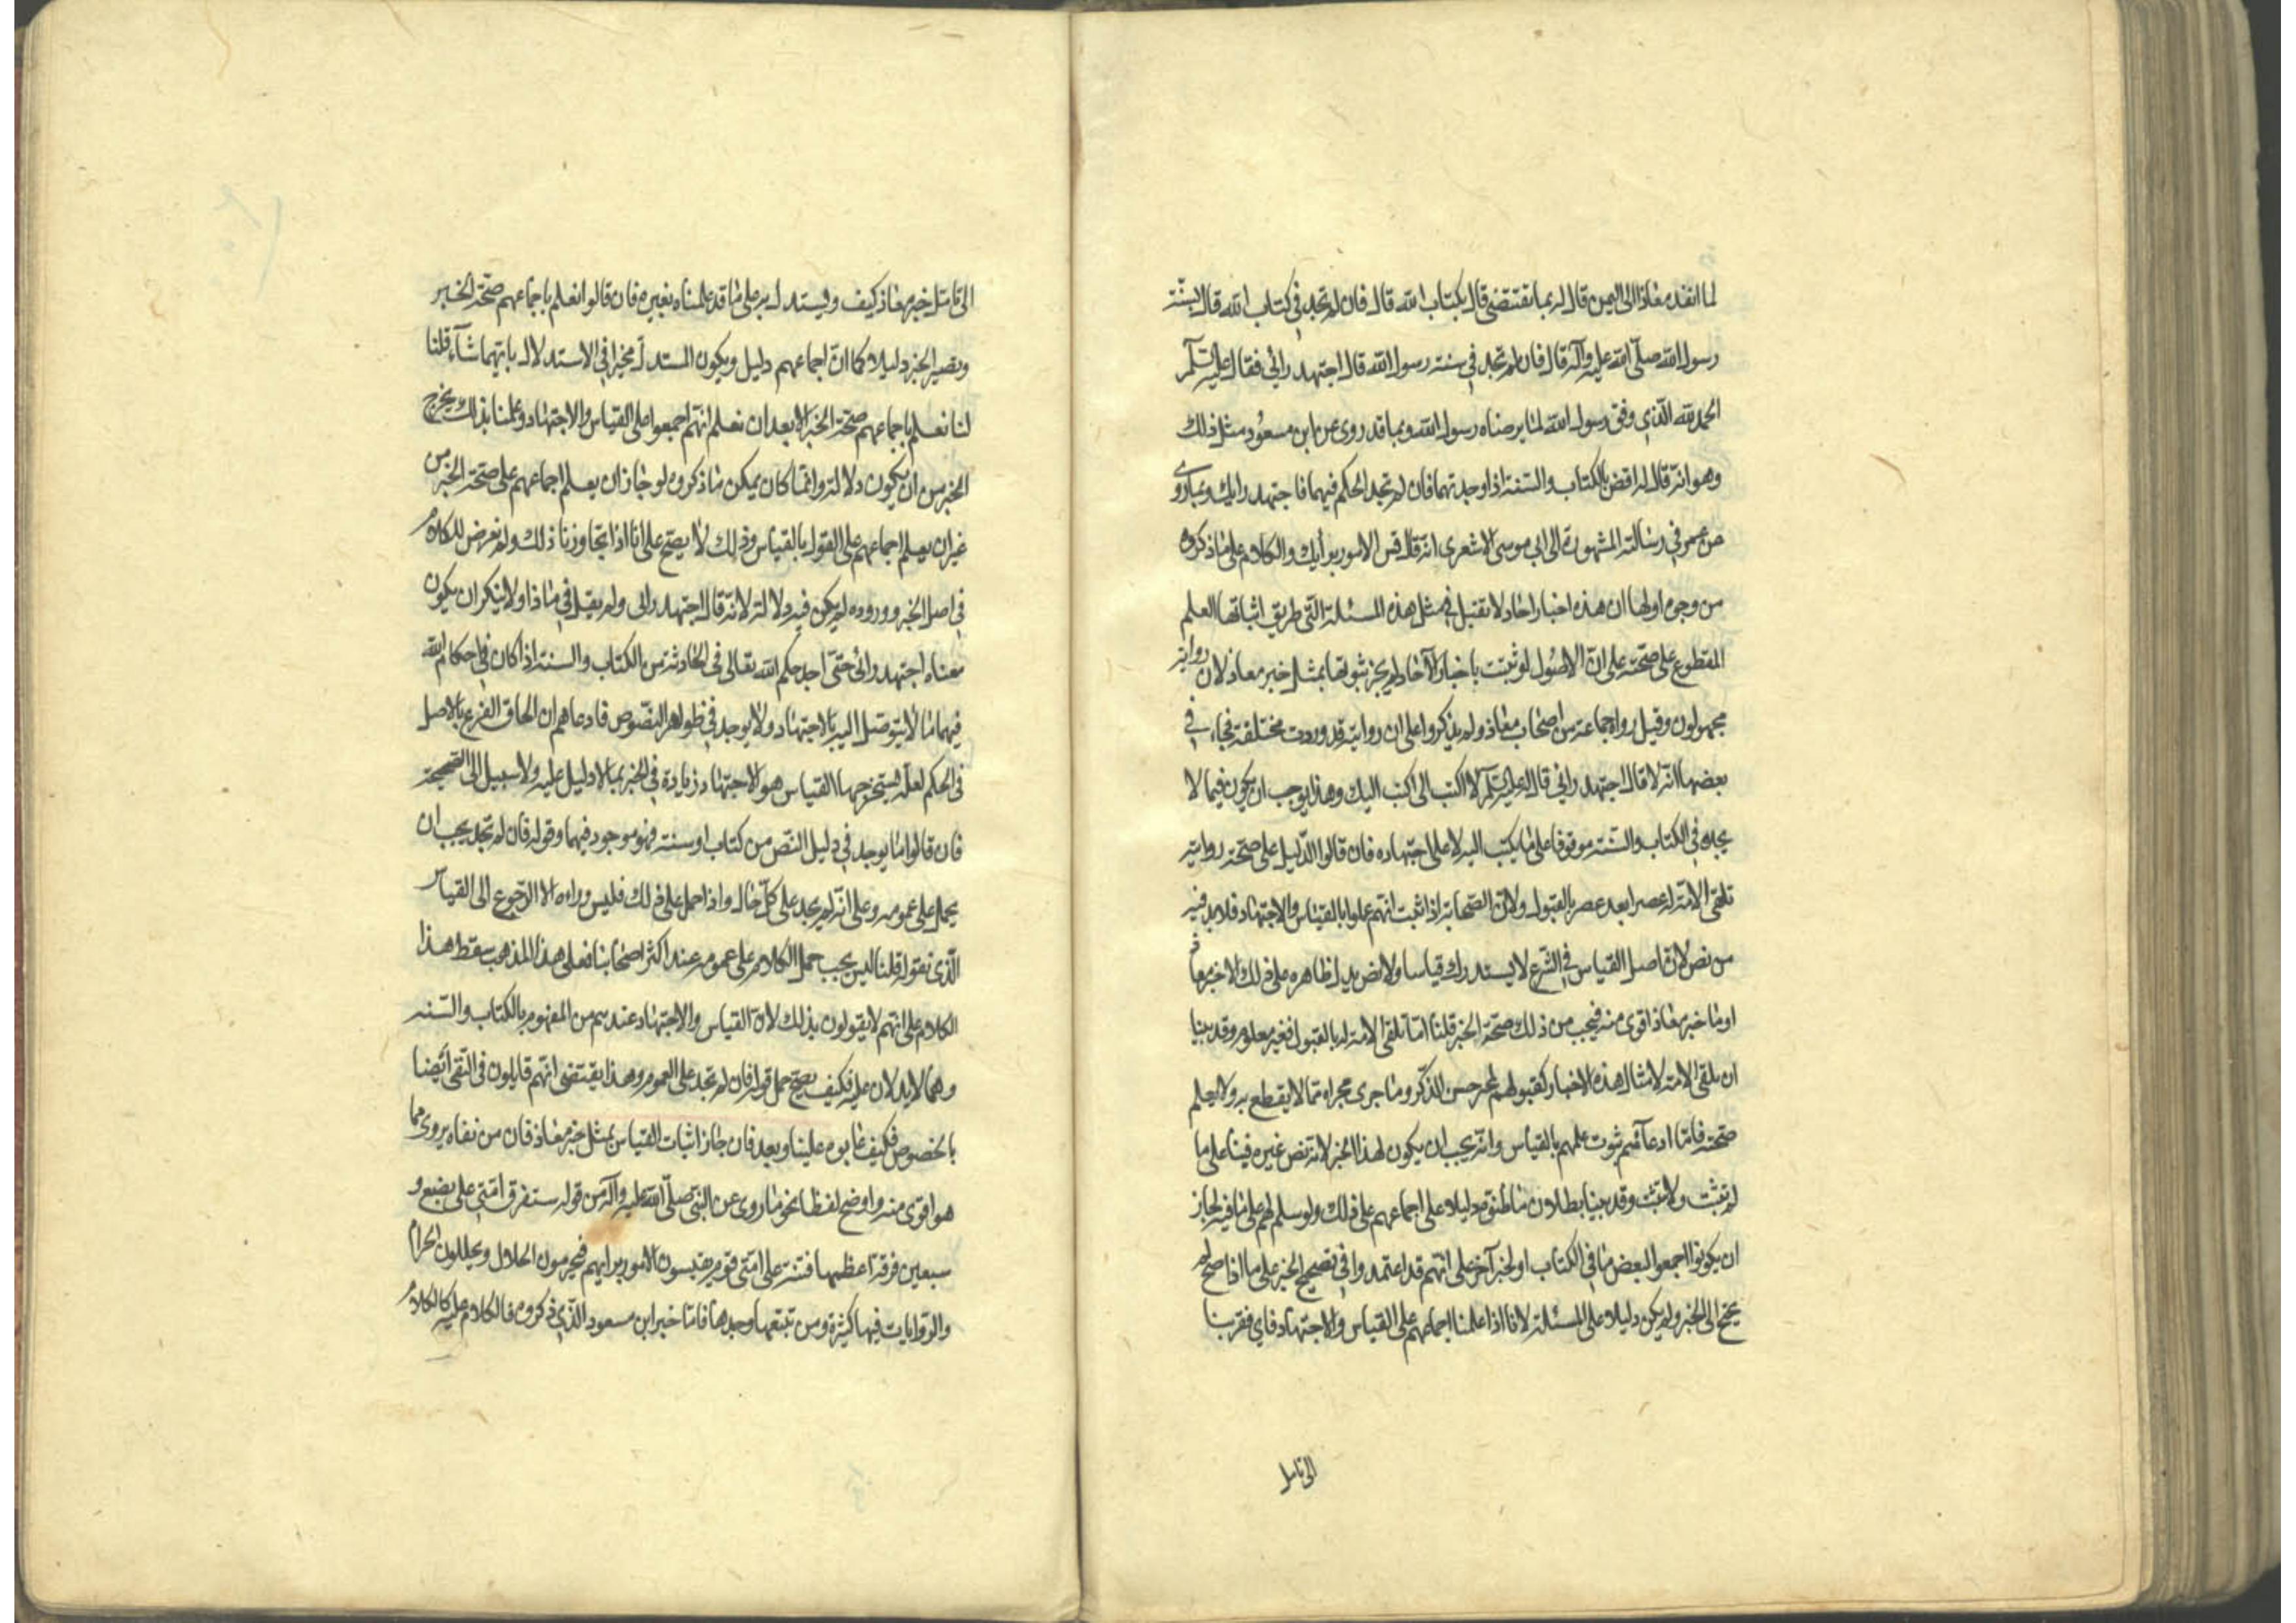 لما انفذ معاذا الى اليمن قال له بما تقتضى قال بكتاب الله قال فان لم تجد فى كتاب الله قال بسنّة
رسول الله صلّى الله عليه وآله قال فان لم تجد فى سنة رسول الله قال اجتهد رائى فقال عليه السّلم
الحمد لله الّذى وفق رسول الله لما يرضاه رسول الله وبما قد روى عن ابن مسعود مثل ذلك
وهو انّه قال له اقض بالكتاب والسّنة اذا وجدتهما فان لم تجد الحكم فيهما فاجتهد رايك وبما روى
عن عمر فى رسالته المشهورة الى ابى موسى الاشعرى انّه قال قس الامور برأيك والكلام على ما ذكروه
من وجوه اولها ان هذه اخبار احاد لا تقبل فى مثل هذه المسئلة الّتى طريق اثباتها العلم
المقطوع على صحّته على انّ الاصول لو ثبتت باخبار الآحاد لم يجز ثبوتها بمثل خبر معاذ لان رواية
مجهولون وقيل رواه جماعة من اصحاب معاذ ولم يذكروا على ان روايته قد وردت مختلفة فجاء فى
بعضها انّه لا قال اجتهد رائى قال عليه السّلم لا اكتب الى اكتب اليك وهذا يوجب ان يكون فيما لا
يجده فى الكتاب والسّنة موقوفا على ما يكتب اليه لا على اجتهاده فان قالوا الدّليل على صحّة روايته
تلقى الامّة له عصرا بعد عصر بالقبول ولانّ الصّحابة اذا ثبت انّهم عملوا بالقياس والاجتهاد فلابد فيه
من نص لانّ اصل القياس فى الشّرع لا يستدرك قياسا ولا نص يدل ظاهره على ذلك الا خبر معاذ
او ما خبر معاذ اقوى منه فيجب من ذلك صحّة الخبر قلنا امّا تلقى الامّة له بالقبول فغير معلوم وقد بيّنا
ان تلقى الامّة لامثال هذه الاخبار كقبولهم لخبر حسن الذّكر وما جرى مجراه ممّا لا يقطع به ولا يعلم
صحّته فامّا ادعآئهم ثبوت علمهم بالقياس وانّه يجب ان يكون لهذا الخبر لانّه نص غيره فبناء على ما
لم يثبت ولا يثبت وقد بيّنا بطلان ما ظنوّه دليلا على اجماعهم على ذلك ولو سلم لهم على ما فيه لجاز
ان يكونوا اجمعوا لبعض ما فى الكتاب او لخبر آخر على انّهم قد اعتمدوا فى تصحيح الخبر على ما اذا صح لم
يحتج الى الخبر ولم يكن دليلا على المسئلة لانا اذا علمنا اجماعهم على القياس والاجتهاد فاى فقر بنا
الى تامل
الى تامّل خبر معاذ كيف ويستدل به على ما قد علمناه بغيره فان قالوا نعلم باجماعهم صحّة الخبر
ويصير الخبر دليلا كما انّ اجماعهم دليل ويكون المستدلّ مخيرا فى الاستدلال بايّهما شآء قلنا
لنا نعلم باجماعهم صحّة الخبر الا بعد ان نعلم انّهم اجمعوا على القياس والاجتهاد وعلمنا بذلك يخرج
الخبر من ان يكون دلالة وانّما كان يمكن ما ذكروه لو جاز ان يعلم اجماعهم على صحّة الخبر من
غير ان يعلم اجماعهم على القول بالقياس وذلك لا يصحّ على انا اذا تجاوزنا ذلك ولم نعرض للكلام
فى اصل الخبر ووروده لم يكن فيه دلالة لانّه قال اجتهد رائى ولم يقل فى ما ذا ولا ينكر ان يكون
معناه اجتهد رائى حتّى اجد حكم الله تعالى فى الحادثة من الكتاب والسنة اذا كان فى احكام الله
فيهما ما لا يتوصّل اليه الا بالاجتهاد ولا يوجد فى ظواهر النّصوص فادعاهم ان الحاق الفرع بالاصل
فى الحكم لعلّة يستخرجها القياس هو الاجتهاد زيادة فى الخبر بما لا دليل عليه ولا سبيل الى تصحيحه
فان قالوا ما يوجد فى دليل النّص من كتاب او سنة فهو موجود فيهما وقوله فان لم تجد يجب ان
يحمل على عمومه وعلى انّه لم يجد على كلّ حال واذا حمل على ذلك فليس وراه الا الرّجوع الى القياس
الّذى نقوله قلنا ليس يجب حمل الكلام على عمومه عند اكثر اصحابنا فعلى هذا المذهب سقط هذا
الكلام على انّهم لا يقولون بذلك لانّ القياس والاجتهاد عندهم من المفهوم بالكتاب والسّنة
وهما لا يدلان عليه فكيف يصحّ حمل قوله فان لم تجد على العموم وهذا يقتضى انّهم قايلون فى النّفى أيضا
بالخصوص فكيف عابوه علينا وبعد فان جاز اثبات القياس بمثل خبر معاذ فان من نفاه يروى مما
هو اقوى منه واوضح لفظا نحو ما روى عن النّبى صلّى الله عليه وآله من قوله ستفرق امّتى على بضع و
سبعين فرقة اعظمها فتنة على امّتى قوم يقيسون الامور برايهم فيحرمون الحلال ويحللون الحرام
والرّوايات فيها كثيرة ومن تتبعها وجدها فامّا خبر ابن مسعود الّذى ذكروه فالكلام عليه كالكلام